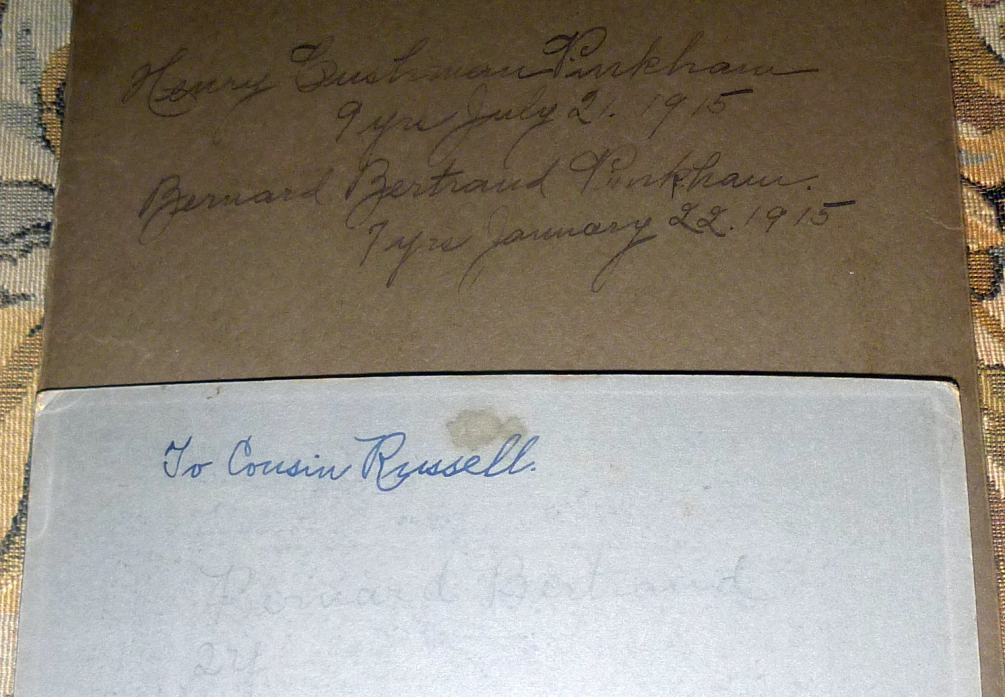 Henry Cushman Pinkham
9 yrs July 21. 1915
Bernard Bertrand Pinkham.
7 yrs January 22. 1915
To Cousin Russell.
Bernard Bertrand